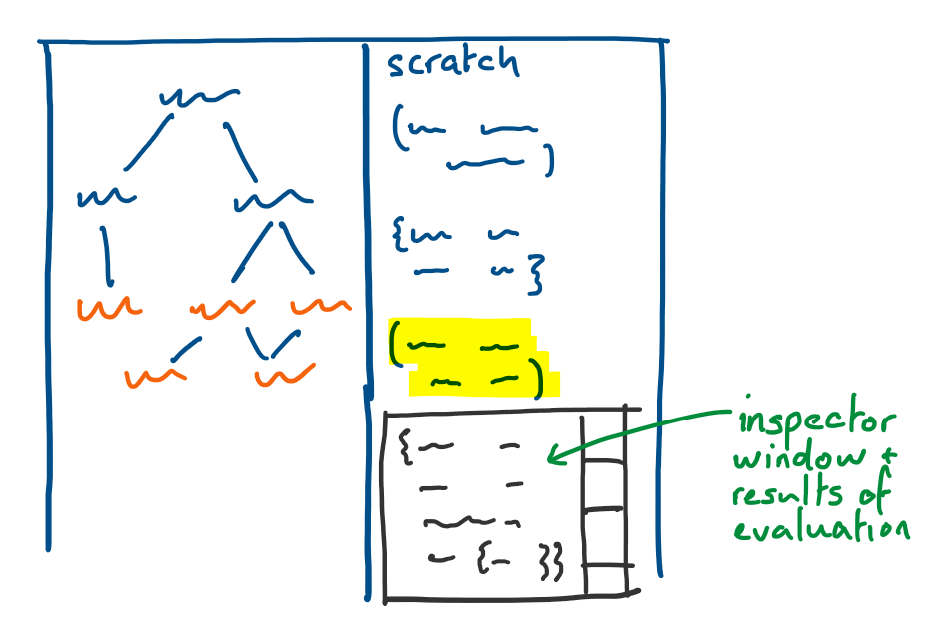 scratch
inspector
window +
results of
evaluation